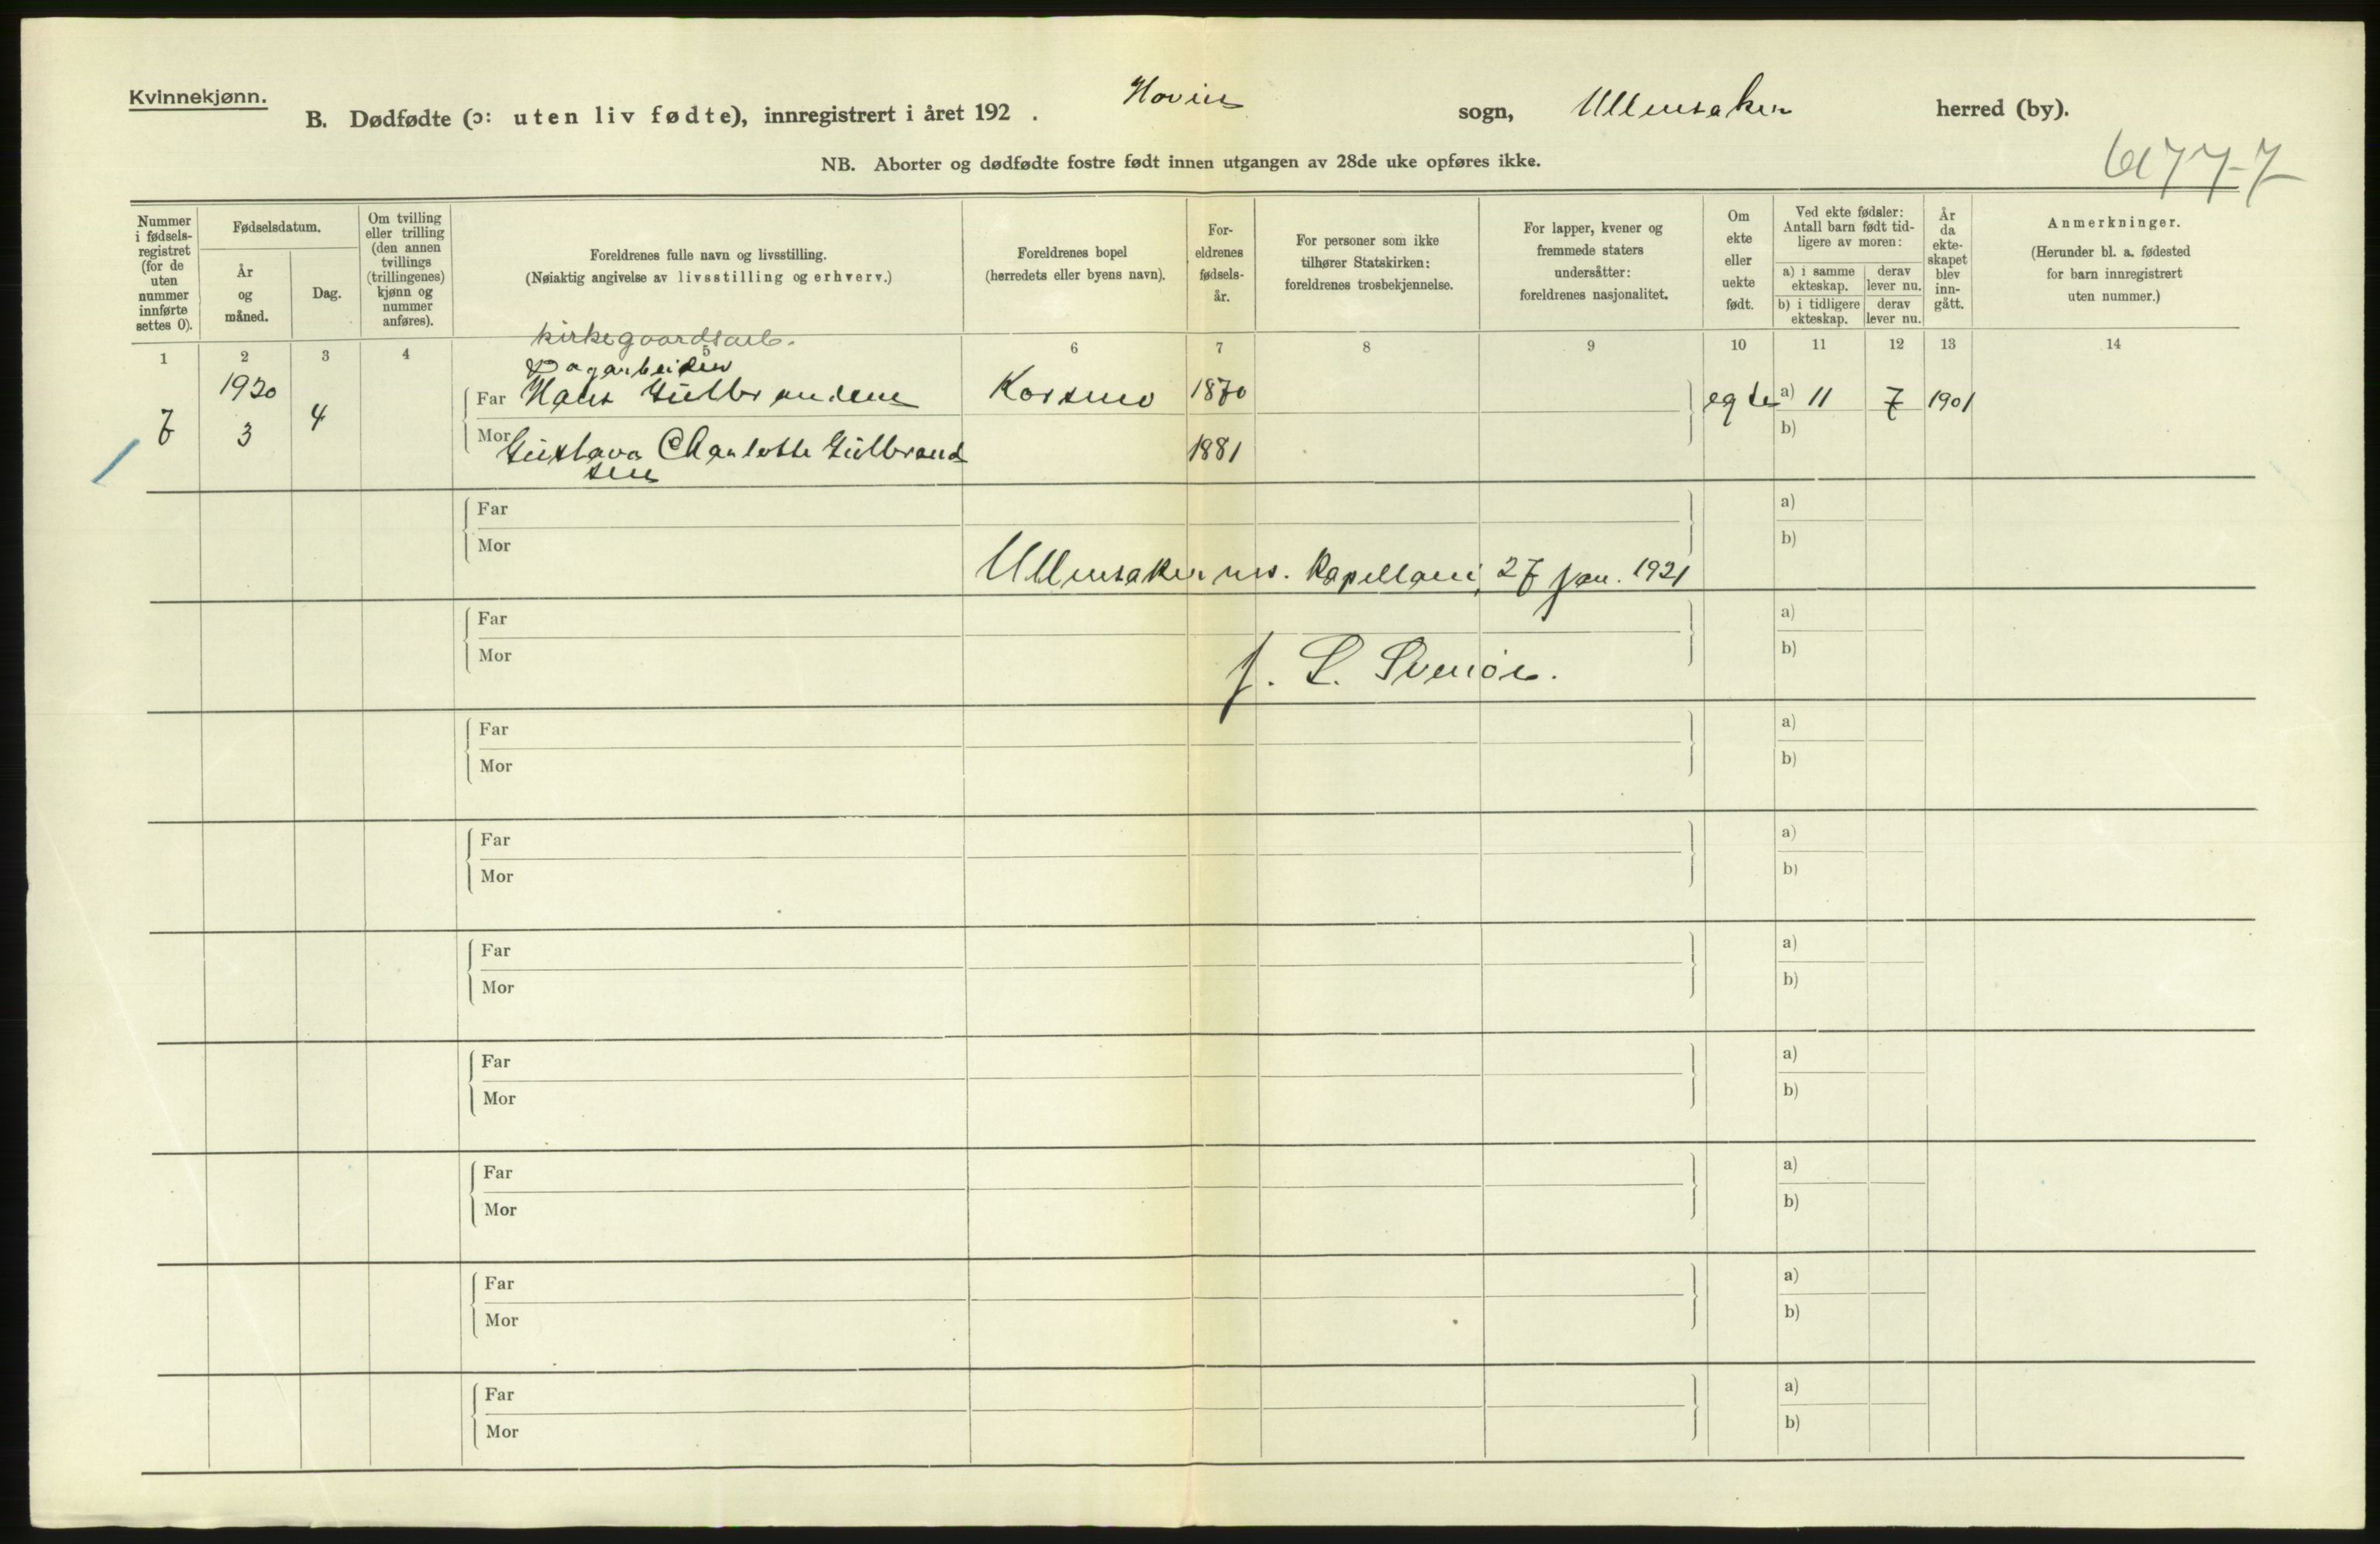 Kvinnekjønn.
B. Dødfødte (ɔ: uten liv fødte), innregistrert i året 192 . Hovin sogn, Ullensaker herred (by).
NB. Aborter og dødfødte fostre født innen utgangen av 28de uke opføres ikke.
Nummer i fødsels-registret (for de uten nummer innførte settes 0).
Fødselsdatum.
År og måned.
Dag.
Om tvilling eller trilling (den annen tvillings (trillingenes) kjønn og nummer anføres).
Foreldrenes fulle navn og livsstilling.
(Nøiaktig angivelse av livsstilling og erhverv.)
Foreldrenes bopel
(herredets eller byens navn).
For-eldrenes fødsels-år.
For personer som ikke tilhører Statskirken: foreldrenes trosbekjennelse.
For lapper, kvener og fremmede staters undersåtter: foreldrenes nasjonalitet.
Om ekte eller uekte født.
Ved ekte fødsler: Antall barn født tid-ligere av moren:
a) i samme ekteskap.
derav lever nu.
b) i tidligere ekteskap.
derav lever nu.
År da ekte-skapet blev inn-gått.
Anmerkninger.
(Herunder bl. a. fødested for barn innregistrert uten nummer.)
kirkegaardsarb.
1 2 3 4 5 6 7 8 9 10 11 12 13 14
Dagarbeider
7 1920 3 4 Far Hans Gulbrandsen Korsmo 1870 egte a) 11 7 1901
Mor Gustava Charlotte Gulbrand 1881 b)
sen
Far a)
Mor b)
Ullensaker res. Kapellani, 27 jan. 1921
Far a)
Mor b)
J. L.
Far a)
Mor b)
Far a)
Mor b)
Far a)
Mor b)
Far a)
Mor b)
Far a)
Mor b)
Far a)
Mor b)
Far a)
Mor b)